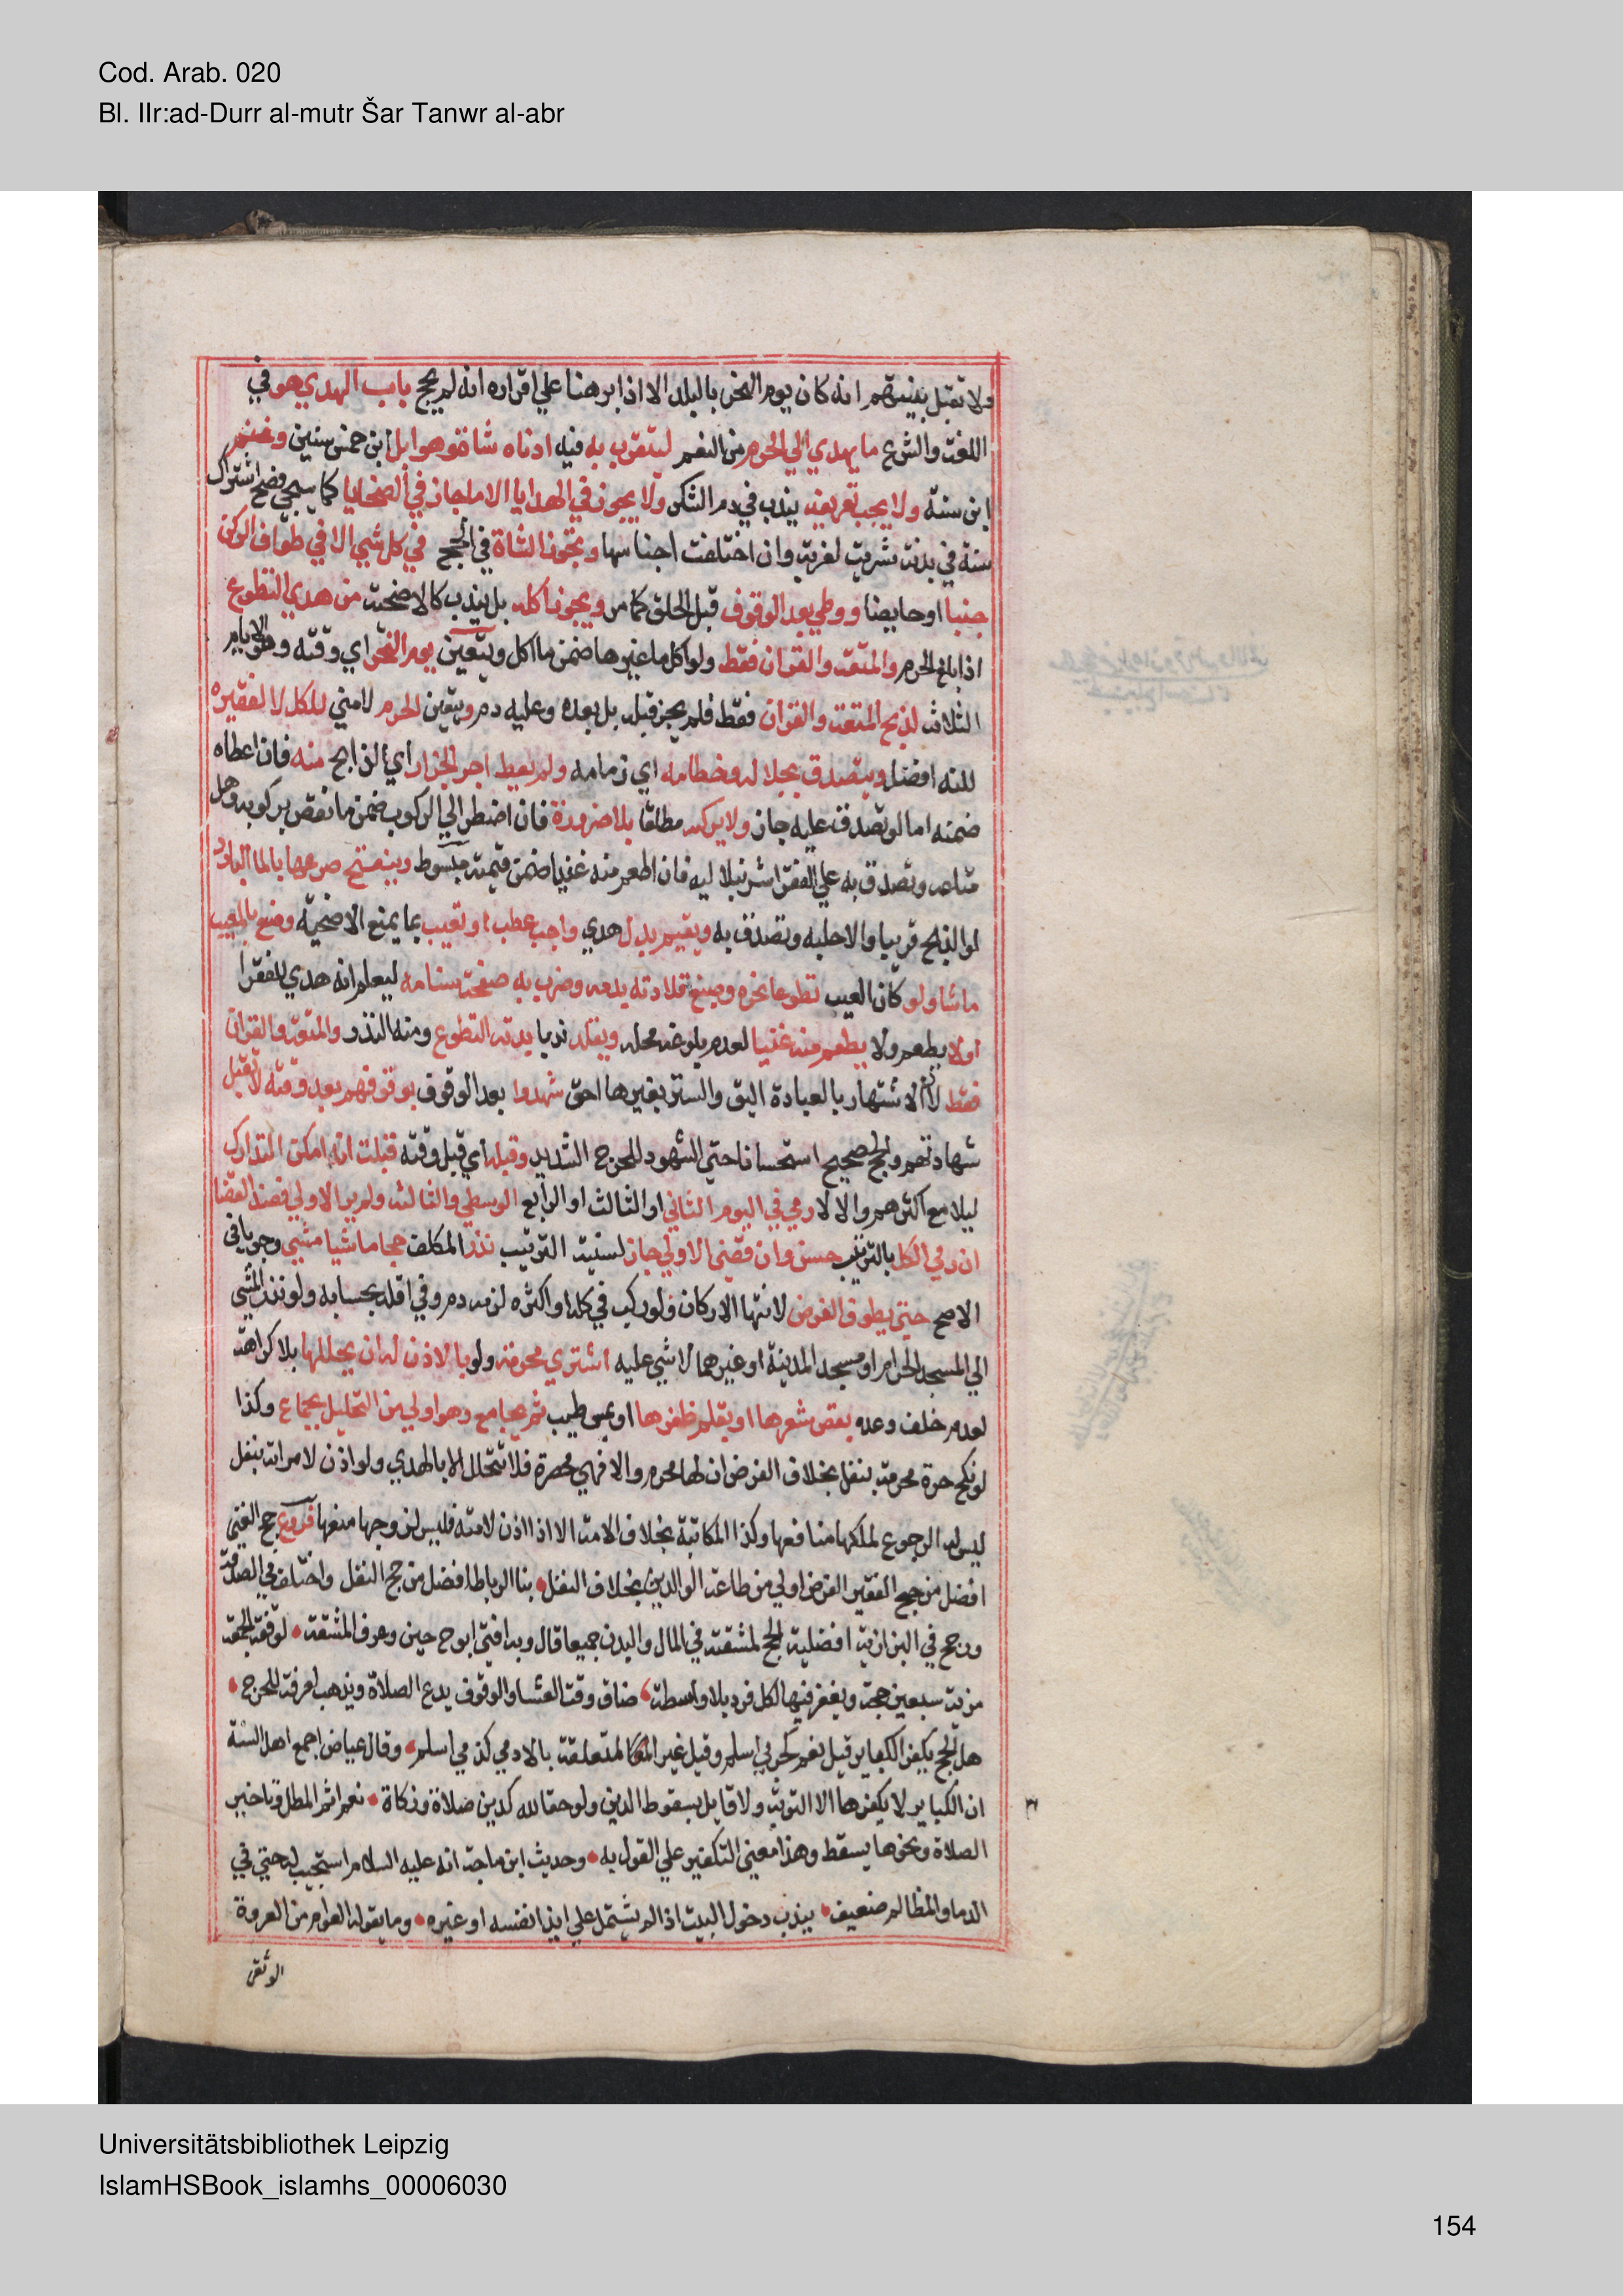 Cod. Arab. 020
Bl. IIr:ad-Durr al-mutr Šar Tanwr al-abr
ولا تقبل بينتهم انه كان يوم النحر بالبلد الا اذا برهنا علي اقراره انه لم يحج باب الهدي هو في
اللغة والشرع ما يهدي الي الحرم من النعم ليتقرب به فيه ادناه شاة وهو ابل ابن خمس سنين وغنم
ابن سنة ولا يجب تعريفه يندب في دم الشكر ولا يجوز في الهدايا الا ما جاز في الضحايا كما سيجي فصح اشتراك
ستة في بدنة شريت لقربة وان اختلفت اجناسها وتجوز الشاة في الحج في كل شي الا في طواف الركن
جنبا او حايضا ووطي بعد الوقوف قبل الحلق كما مر ويجوز اكله بل يندب كالاضحية من هدي التطوع
اذا بلغ الحرم والمتعة والقران فقط ولو اكل ما غيرها ضمن ما اكل ويتعين يوم النحر اي وقته وهو الايام
الثلاثة لذبح المتعة والقران فقط فلم يجز قبله بل بعده وعليه دم ويتعين الحرم لا مني للكل لا لفقيره
لكنه افضل ويتصدق بجلاله وخطامه اي زمامه ولم يعط اجر الجزار اي الذابح منه فان اعطاه
ضمنه اما لو تصدق عليه جاز ولا يركبه مطلقا بلا ضرورة فان اضطر الي الركوب ضمن ما نقص بركوبه وحمل
متاعه وتصدق به علي الفقرا شرنبلاليه فان اطعم منه غنيا ضمن قيمته مبسوط وينضح ضرعها بالما البارد
لو الذبح قريبا والا حلبه وتصدق به ويقيم بدل هدي واجب عطب او تعيب بما يمنع الاضحية وصنع بالمعيب
ما شا ولو كان المعيب تطوعا نحره وصبغ قلادته بدمه وضرب به صفحة سنامه ليعلم انه هدي للفقرا
ولا يطعم ولا يطعم منه غنيا لعدم بلوغه محله ويقلد ندبا بدنة التطوع ومنه النذر والمتعة والقران
فقط لان الاشتهار بالعبادة اليق والستر بغيرها احق شهدوا بعد الوقوف بوقوفهم بعد وقته لا تقبل
شهادتهم والحج صحيح استحسانا حتي الشهود للحرج الشديد وقبله اي قبل وقته قبلت ان امكن التدارك
ليلا مع اكثرهم والا لا رمي في اليوم الثاني او الثالث او الرابع الوسطي والثالثة ولم يرم الاولي فعند القضا
ان رمي الكل بالترتيب حسن وان قضي الاولي جاز لسنية الترتيب نذر المكلف حجا ماشيا مشي وجوبا في
الاصح حتي يطوف الفرض لانتها الاركان ولو ركب في كله او اكثره لزمه دم وفي اقله بحسابه ولو نذر المشي
الي المسجد الحرام او مسجد المدينة او غيرهما لا شي عليه اشتري محرمة ولو بالاذن له ان يحللها بلا كراهة
لعدم خلف وعده بقص شعرها او بقلم ظفرها او بمس طيب ثم يجامع وهو اولي من التحليل بجماع وكذا
لو نكح حرة محرمة بنفل بخلاف الفرض ان لها محرم والا فهي محصرة فلا تتحلل الا بالهدي ولو اذن لامراته بنفل
ليس له الرجوع لملكها منافعها وكذا المكاتبة بخلاف الامة الا اذا اذن لامته فليس لزوجها منعها فروع حج الغني
افضل من حج الفقير الفرض اولي من طاعة الوالدين بخلاف النفل بنا الرباط افضل من حج النفل واختلف في الصدقة
ورجح في البزازية افضلية الحج لمشقته في المال والبدن جميعا قال وبه افتي ابو ح حين حج وعرف المشقة لوقفة الجمعة
مزية سبعين حجة ويغفر فيها لكل فرد بلا واسطة ضاق وقت العشا والوقوف يدع الصلاة ويذهب لعرفة للحرج
هل الحج يكفر الكباير قيل نعم كحربي اسلم وقيل غير المتعلقة بالادمي كذمي اسلم وقال عياض اجمع اهل السنة
ان الكباير لا يكفرها الا التوبة ولا قايل بسقوط الدين ولو حقا لله كدين صلاة وزكاة نعم اثم المطل وتاخير
الصلاة ونحوها يسقط وهذا معني التكفير علي القول به وحديث ابن ماجة انه عليه السلام استجيب له حتي في
الدما والمظالم ضعيف يندب دخول البيت اذا لم يشتمل علي ايذا نفسه او غيره وما يقوله العوام من العروة
الوثقي
Universitätsbibliothek Leipzig
IslamHSBook_islamhs_00006030
154